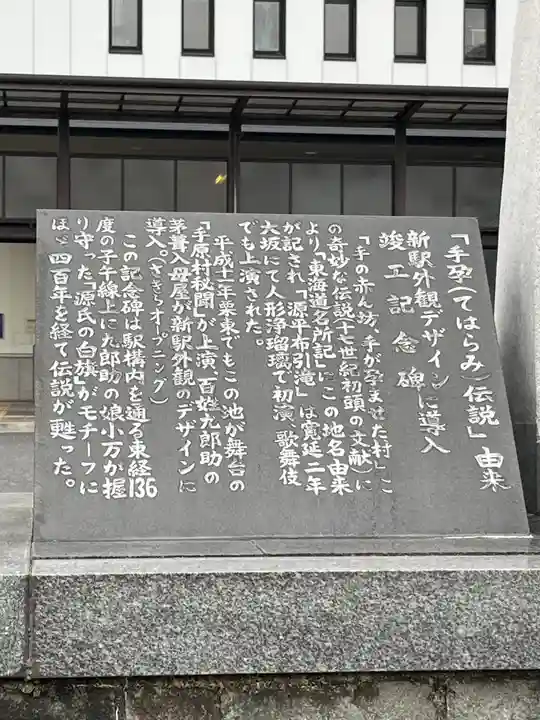 「手孕(てはらみ)伝説」由来
新駅外観デザインに導入
竣工記念碑
「手の赤ん坊、手が孕ませた村」こ
の奇妙な伝説(十七世紀初頭の文献)に
より「東海道名所記」にこの地名由来
が記され、「源平布引滝」は寛延二年
大坂にて人形浄瑠璃で初演、歌舞伎
でも上演された。
平成十一年栗東でもこの池が舞台の
「手原村秘聞」が上演、百姓九郎助の
茅葺入母屋が新駅外観のデザインに
導入。(さきらオープニング)
この記念碑は駅構内を通る東経136
度の子午線上に九郎助の娘小万が握
り守った「源氏の白旗」がモチーフに
ほゞ四百年を経て伝説が甦った。